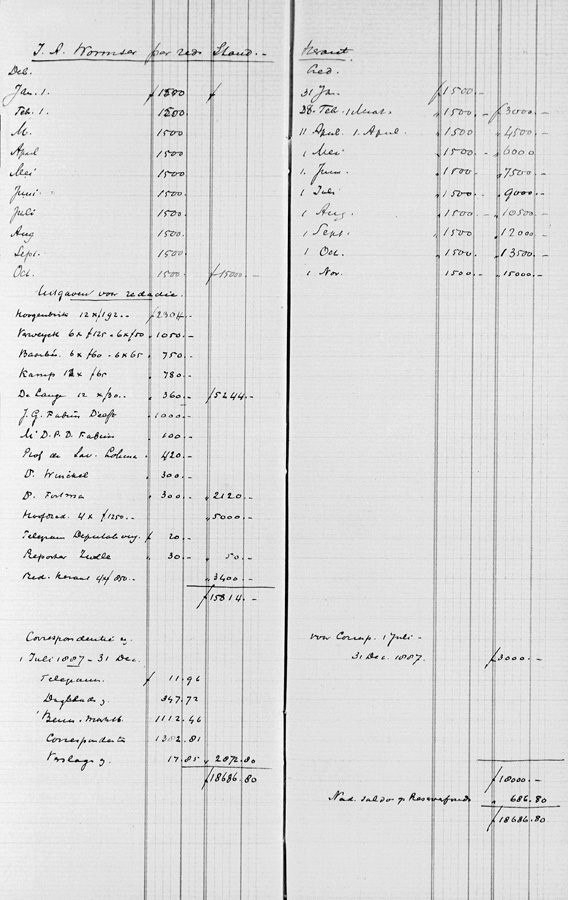 J. A. Wormser per reds Stand.-
Deb.
Jan. 1. f 1500 f
Feb. 1. 1500
M. 1500
April 1500
Mei 1500
Juni 1500
Juli 1500.
Aug 1500
Sept. 1500
Oct. 1500 f 15000.-
Uitgaven voor redactie.
Hoogenbirk 12 x f192.- f 2304.-
Verweyck 6 x f125.- 6 x f50 " 1050.-
6 x f60 - 6 x 65 " 750.-
Kamp 12 x f65 780.-
De Lange 12 x f30.- " 360.- f 5244.-
J. G. Fabius " 1000.-
Mr D. P. D. Fabius " 100.-
Prof de Sav. Lohman " 420.-
Dr. Winckel " 300.-
Dr. Fortma " 300.- " 2120.-
Hoofdred. 4 x f1250.- " 5000.-
Telegram f 20.-
Reporter Zwolle " 30.- " 50.-
Red. Heraut 4 x f850.- " 3400.-
f 15814.-
Correspondentie
1 Juli 1887 - 31 Dec.
Telegram f 11.96
Dagblad 347.72
1112.46
Correspondenten 1382.81
Verslag 17.85 " 2872.80
f 18686.80
Heraut
Cred.
31 Jan. f 1500.-
28. Feb. 1 Maart. " 1500.- f 3000.-
11 April. 1. April. " 1500 " 4500.-
1 Mei " 1500.- " 6000
1. Juni " 1500.- " 7500.-
1 Juli " 1500.- " 9000.-
1 Aug. " 1500.- " 10500.-
1 Sept. " 1500 " 12000.-
1 Oct. " 1500. " 13500.-
1 Nov. 1500.- " 15000.-
voor Corresp. 1 Juli -
31 Dec. 1887. f 3000.-
f 18000.-
Nad. saldo op Reservefonds " 686.80
f 18686.80